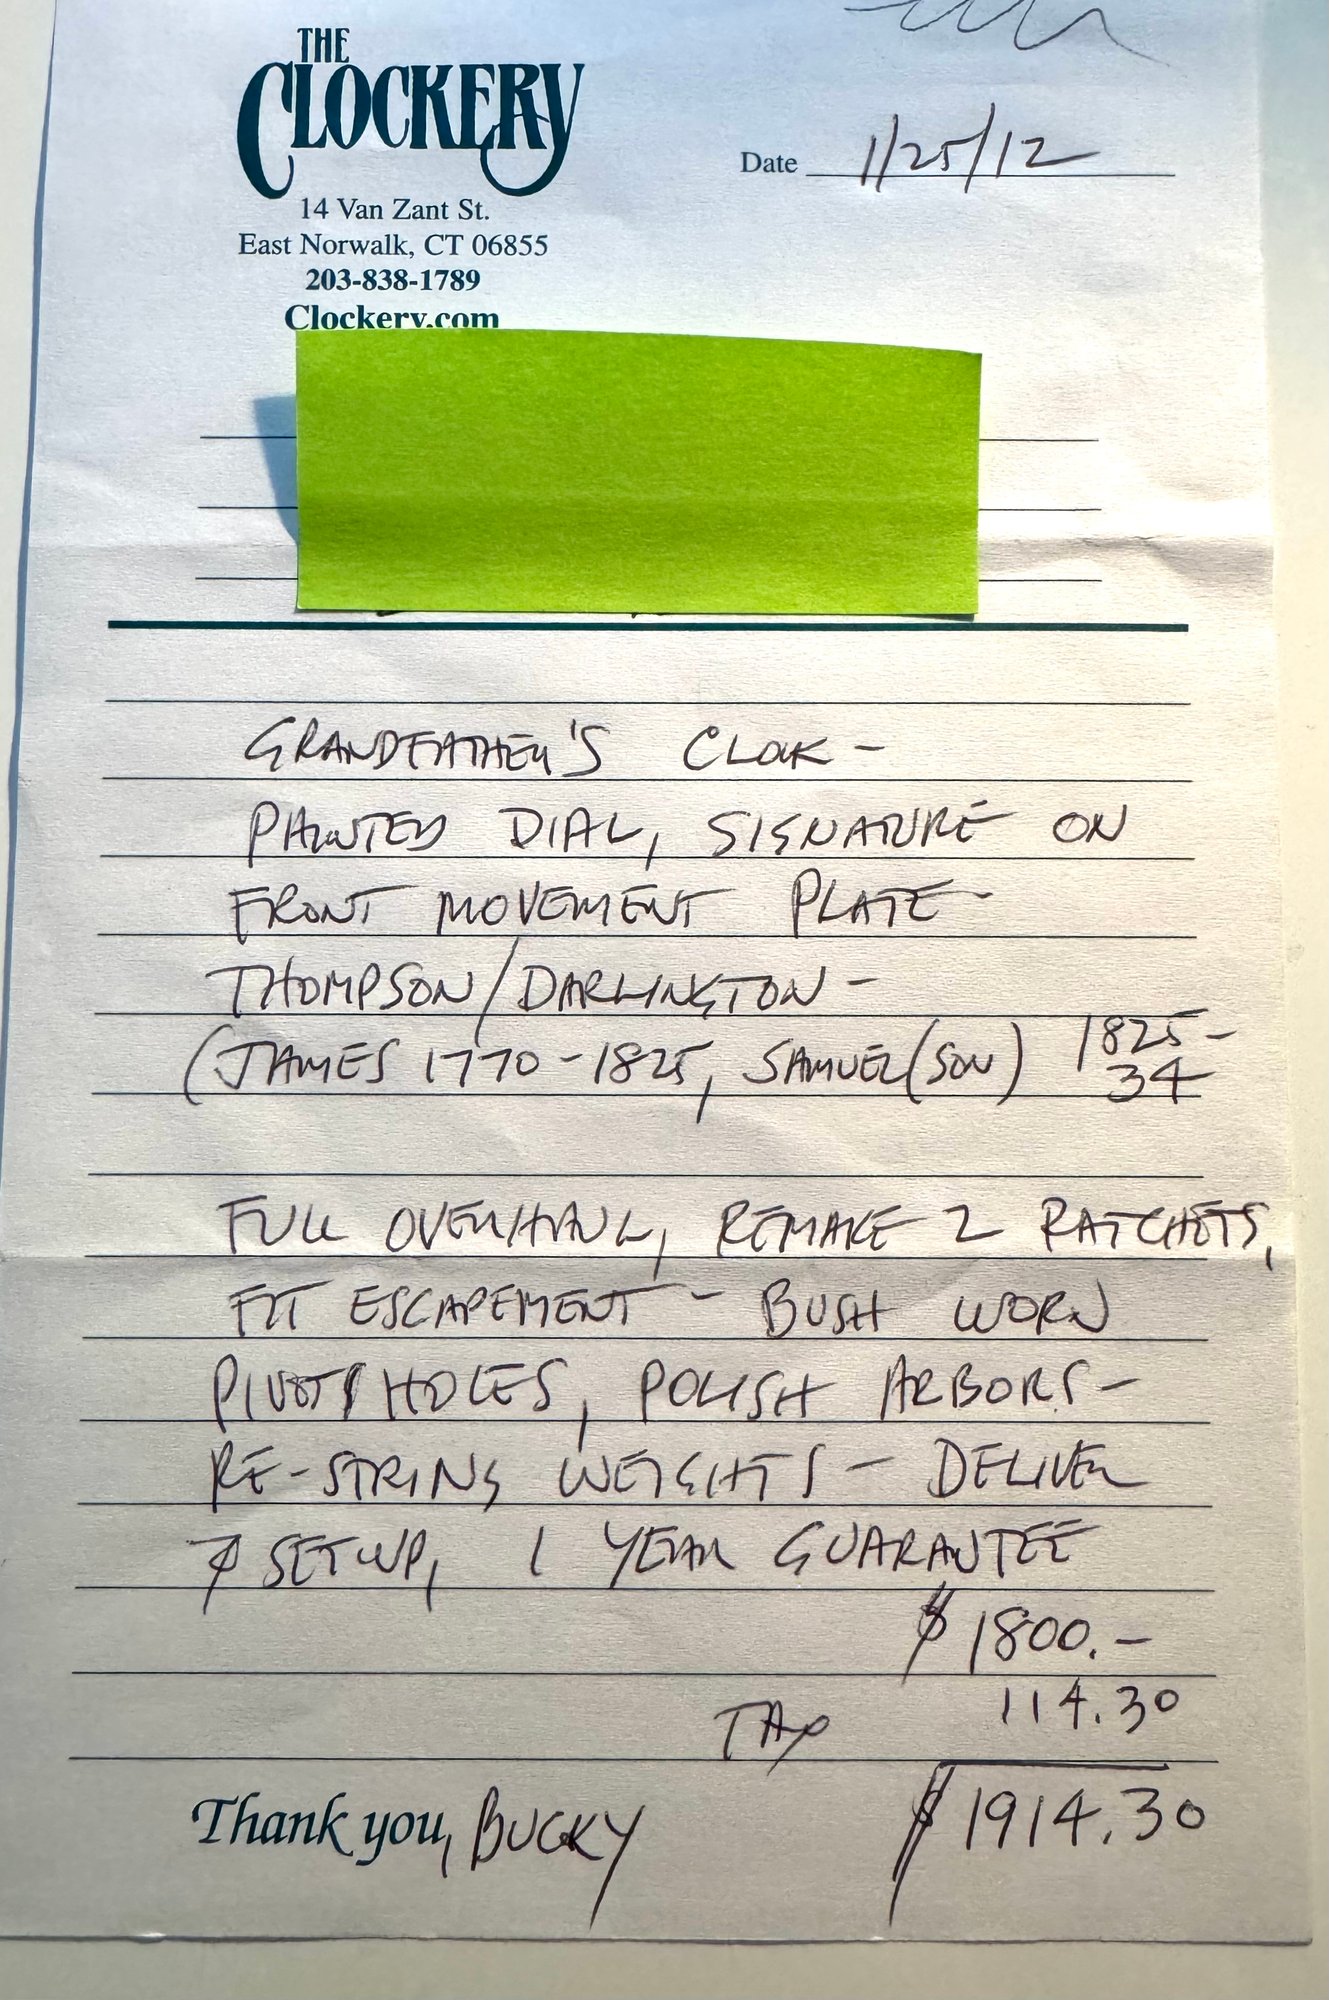 THE
CLOCKERY
14 Van Zant St.
East Norwalk, CT 06855
203-838-1789
Clockery.com
Date 1/25/12
GRANDFATHER'S CLOCK -
PAINTED DIAL, SIGNATURE ON
FRONT MOVEMENT PLATE -
THOMPSON/DARLINGTON -
(JAMES 1770-1825, SAMUEL (SON) 1825-
34
FULL OVERHAUL, REMAKE 2 RATCHETS,
FIT ESCAPEMENT - BUSH WORN
PIVOT HOLES, POLISH ARBORS -
RE-STRING WEIGHTS - DELIVER
& SETUP, 1 YEAR GUARANTEE
$1800.-
TAX 114.30
$1914.30
Thank you, BUCKY